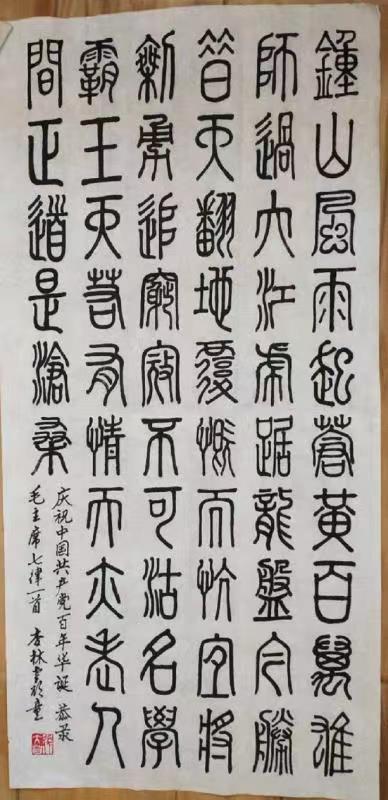 鍾山風雨起蒼黃百萬雄
師過大江虎踞龍盤今勝
昔天翻地覆慨而慷宜將
剩勇追窮寇不可沽名學
霸王天若有情天亦老人
間正道是滄桑
庆祝中国共产党百年华诞 恭录
毛主席七律一首 林书於